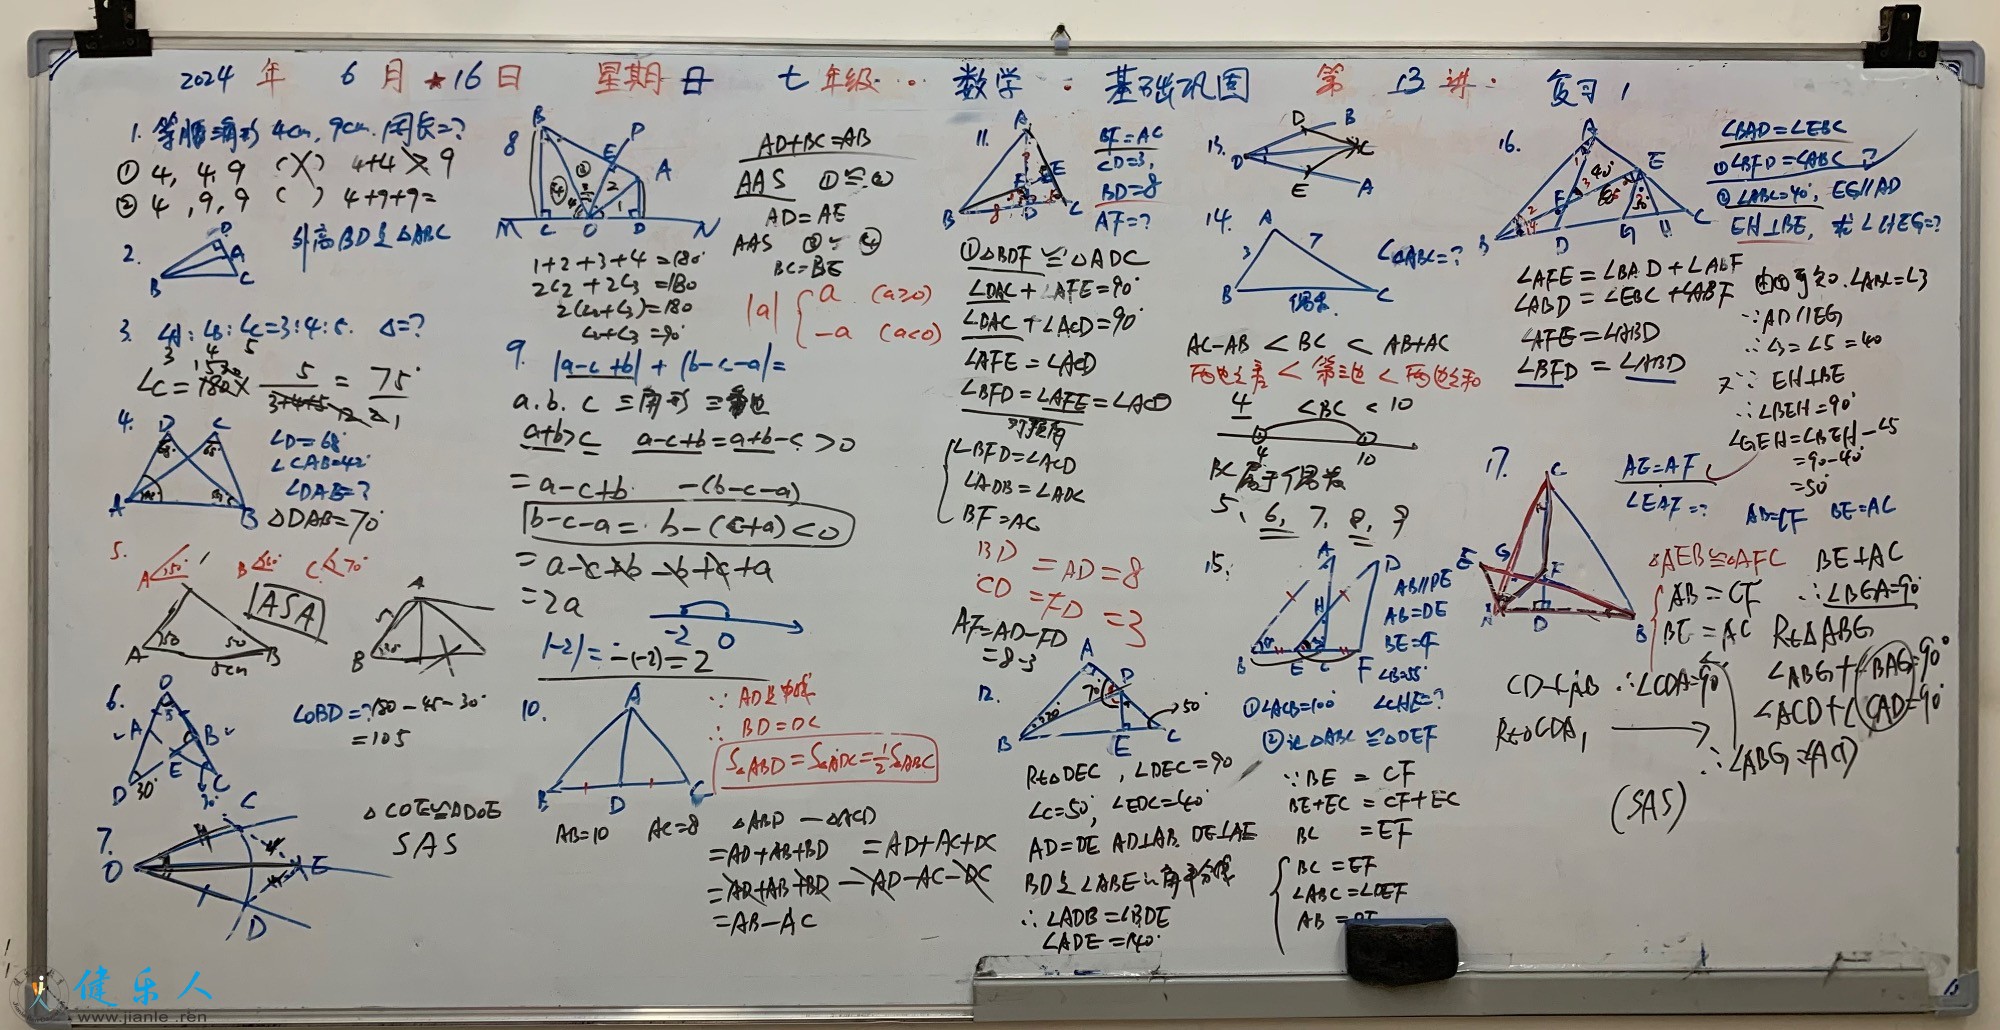 2024 年 6 月 16 日 星期日 七年级 数学 : 基础巩固 第 13 讲 : 复习 1
1. 等腰三角形 4cm, 9cm. 周长=?
① 4, 4, 9 (X) 4+4 > 9
② 4, 9, 9 ( ) 4+9+9=
2. 外高BD是△ABC
D
A
B
C
3. ∠A:∠B:∠C=3:4:5. △=?
3 4 5
∠C=180× 5/(3+4+5) = 75°
4. D C
∠D=68°
∠CAB=42°
∠DAB=?
A B
△DAB=70°
5. A 50° B 60° C 70°
ASA
A 50 50 B
5cm
A
B
6. O
∠OBD=?180-45-30°
=105
A B
E
D 30° C
7. O C E D
△COE≌△DOE
SAS
8 B P
E A
M C O D N
1+2+3+4=180°
2∠2+2∠3=180
2(∠2+∠3)=180
∠2+∠3=90°
AD+BC=AB
AAS ①≌②
AD=AE
AAS ③≌④
BC=BE
|a| { a (a≥0)
-a (a<0)
9. |a-c+b|+|b-c-a|=
a.b.c 三角形三边
a+b>c a-c+b=a+b-c>0
=a-c+b -(b-c-a)
b-c-a= b-(c+a)<0
=a-c+b-b+c+a
=2a
-2 0
|-2|=-(-2)=2
10. A
B D C
∵AD是中线
∴BD=DC
S△ABD=S△ADC=½S△ABC
AB=10 AC=8 △ABD-△ACD
=AD+AB+BD =AD+AC+DC
=AD+AB+BD-AD-AC-DC
=AB-AC
11. A
B D C
BF=AC
CD=3,
BD=8
AF=?
①△BDF≌△ADC
∠DAC+∠AFE=90°
∠DAC+∠ACD=90°
∠AFE=∠ACD
∠BFD=∠AFE=∠ACD
对顶角
∠BFD=∠ACD
∠ADB=∠ADC
BF=AC
BD=AD=8
CD=FD=3
AF=AD-FD
=8-3
12. A D
B E C 50°
Rt△DEC, ∠DEC=90
∠C=50°, ∠EDC=40°
AD=DE AD⊥AB, DE⊥AE
BD是∠ABE的角平分线
∴∠ADB=∠BDE
∠ADE=140°
13. D B
O C
E A
14. A
3 7
B 偶数 C
C△ABC=?
AC-AB < BC < AB+AC
两边之差 < 第三边 < 两边之和
4 <BC< 10
4 10
BC属于偶数
5、6, 7, 8, 9
15. A D
H
B E C F
AB∥DE
AB=DE
BE=CF
∠B=55°
①∠ACB=100° ∠CHE=?
②证△ABC≌△DEF
∵BE=CF
BE+EC=CF+EC
BC =EF
BC=EF
∠ABC=∠DEF
AB=DE
16. A E
F
B D G H C
∠BAD=∠EBC
①∠BFD=∠ABC?
②∠ABC=40°, EG∥AD
EH⊥BE, 求∠HEG=?
∠AFE=∠BAD+∠ABF
∠ABD=∠EBC+∠ABF
∠AFE=∠ABD
∠BFD=∠ABD
由①可知.∠ABC=∠3
∵AD∥EG
∴∠3=∠5=40
又∵EH⊥BE
∴∠BEH=90°
∠GEH=∠BEH-∠5
=90-40°
=50°
17. C
E G F
A D B
AE=AF
∠EAF=? AB=CF BE=AC
△AEB≌△AFC BE⊥AC
AB=CF ∴∠BGA=90°
BE=AC Rt△ABG
CD⊥AB ∴∠CDA=90° ∠ABG+∠BAG=90°
∠ACD+∠CAD=90°
Rt△CDA,
∴∠ABG=∠ACD
(SAS)
健乐人
www.jianle.ren